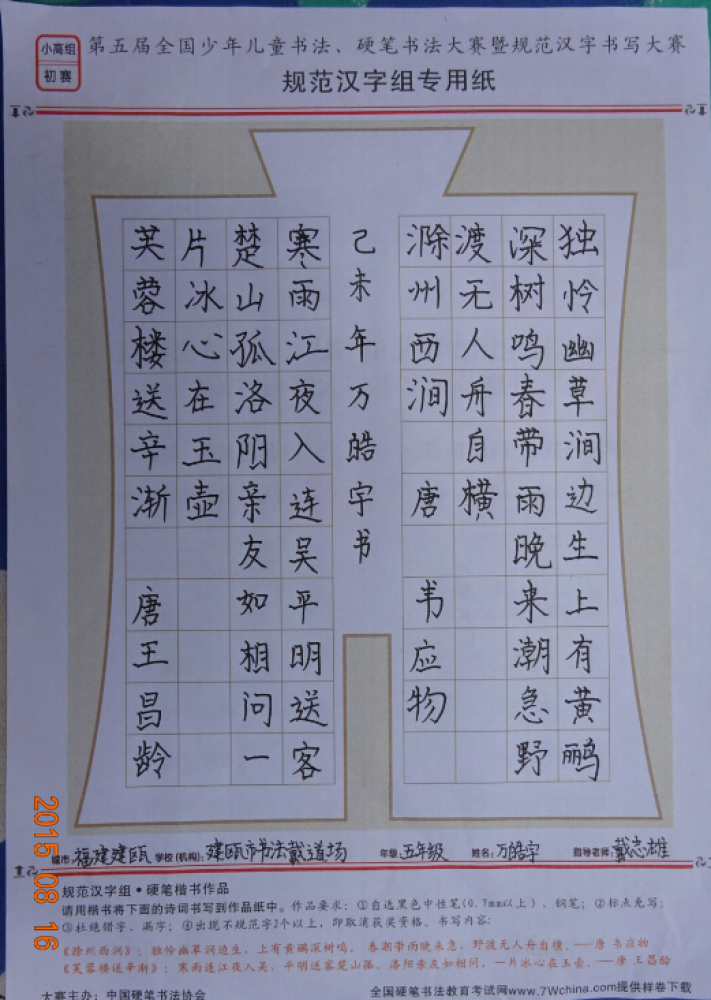 小高组
初赛
第五届全国少年儿童书法、硬笔书法大赛暨规范汉字书写大赛
规范汉字组专用纸
独怜幽草涧边生上有黄鹂
深树鸣春带雨晚来潮急野
渡无人舟自横
滁州西涧 唐 韦应物
己未年万皓宇书
寒雨江夜入连吴平明送客
楚山孤洛阳亲友如相问一
片冰心在玉壶
芙蓉楼送辛渐 唐 王昌龄
城市:福建建瓯 学校(机构):建瓯市书法戴道场 年级:五年级 姓名:万皓宇 指导老师:戴志雄
规范汉字组·硬笔楷书作品
请用楷书将下面的诗词书写到作品纸中。作品要求:①自选黑色中性笔(0.7mm以上)、钢笔;②标点免写;
③杜绝错字、漏字;④出现不规范字2个以上,即取消获奖资格。书写内容:
《滁州西涧》:独怜幽草涧边生,上有黄鹂深树鸣。春潮带雨晚来急,野渡无人舟自横。——唐 韦应物
《芙蓉楼送辛渐》:寒雨连江夜入吴,平明送客楚山孤。洛阳亲友如相问,一片冰心在玉壶。——唐 王昌龄
大赛主办:中国硬笔书法协会
全国硬笔书法教育考试网www.7Wchina.com提供样卷下载
2015 08 16